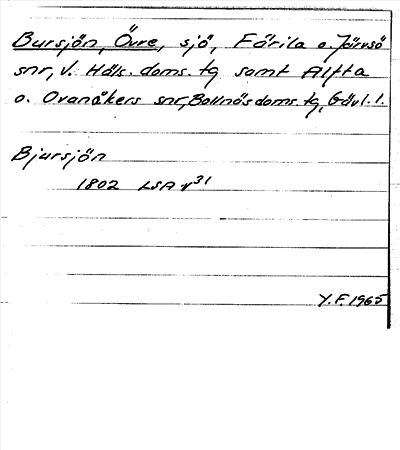 Bursjön, Övre, sjö, Färila o. Järvsö
snr, V. Häls. doms. tg samt Alfta
o. Ovanåkers snr, Bollnäs doms. tg, Gävl. l.
Bjursjön
1802 LSA v31
Y.F. 1965